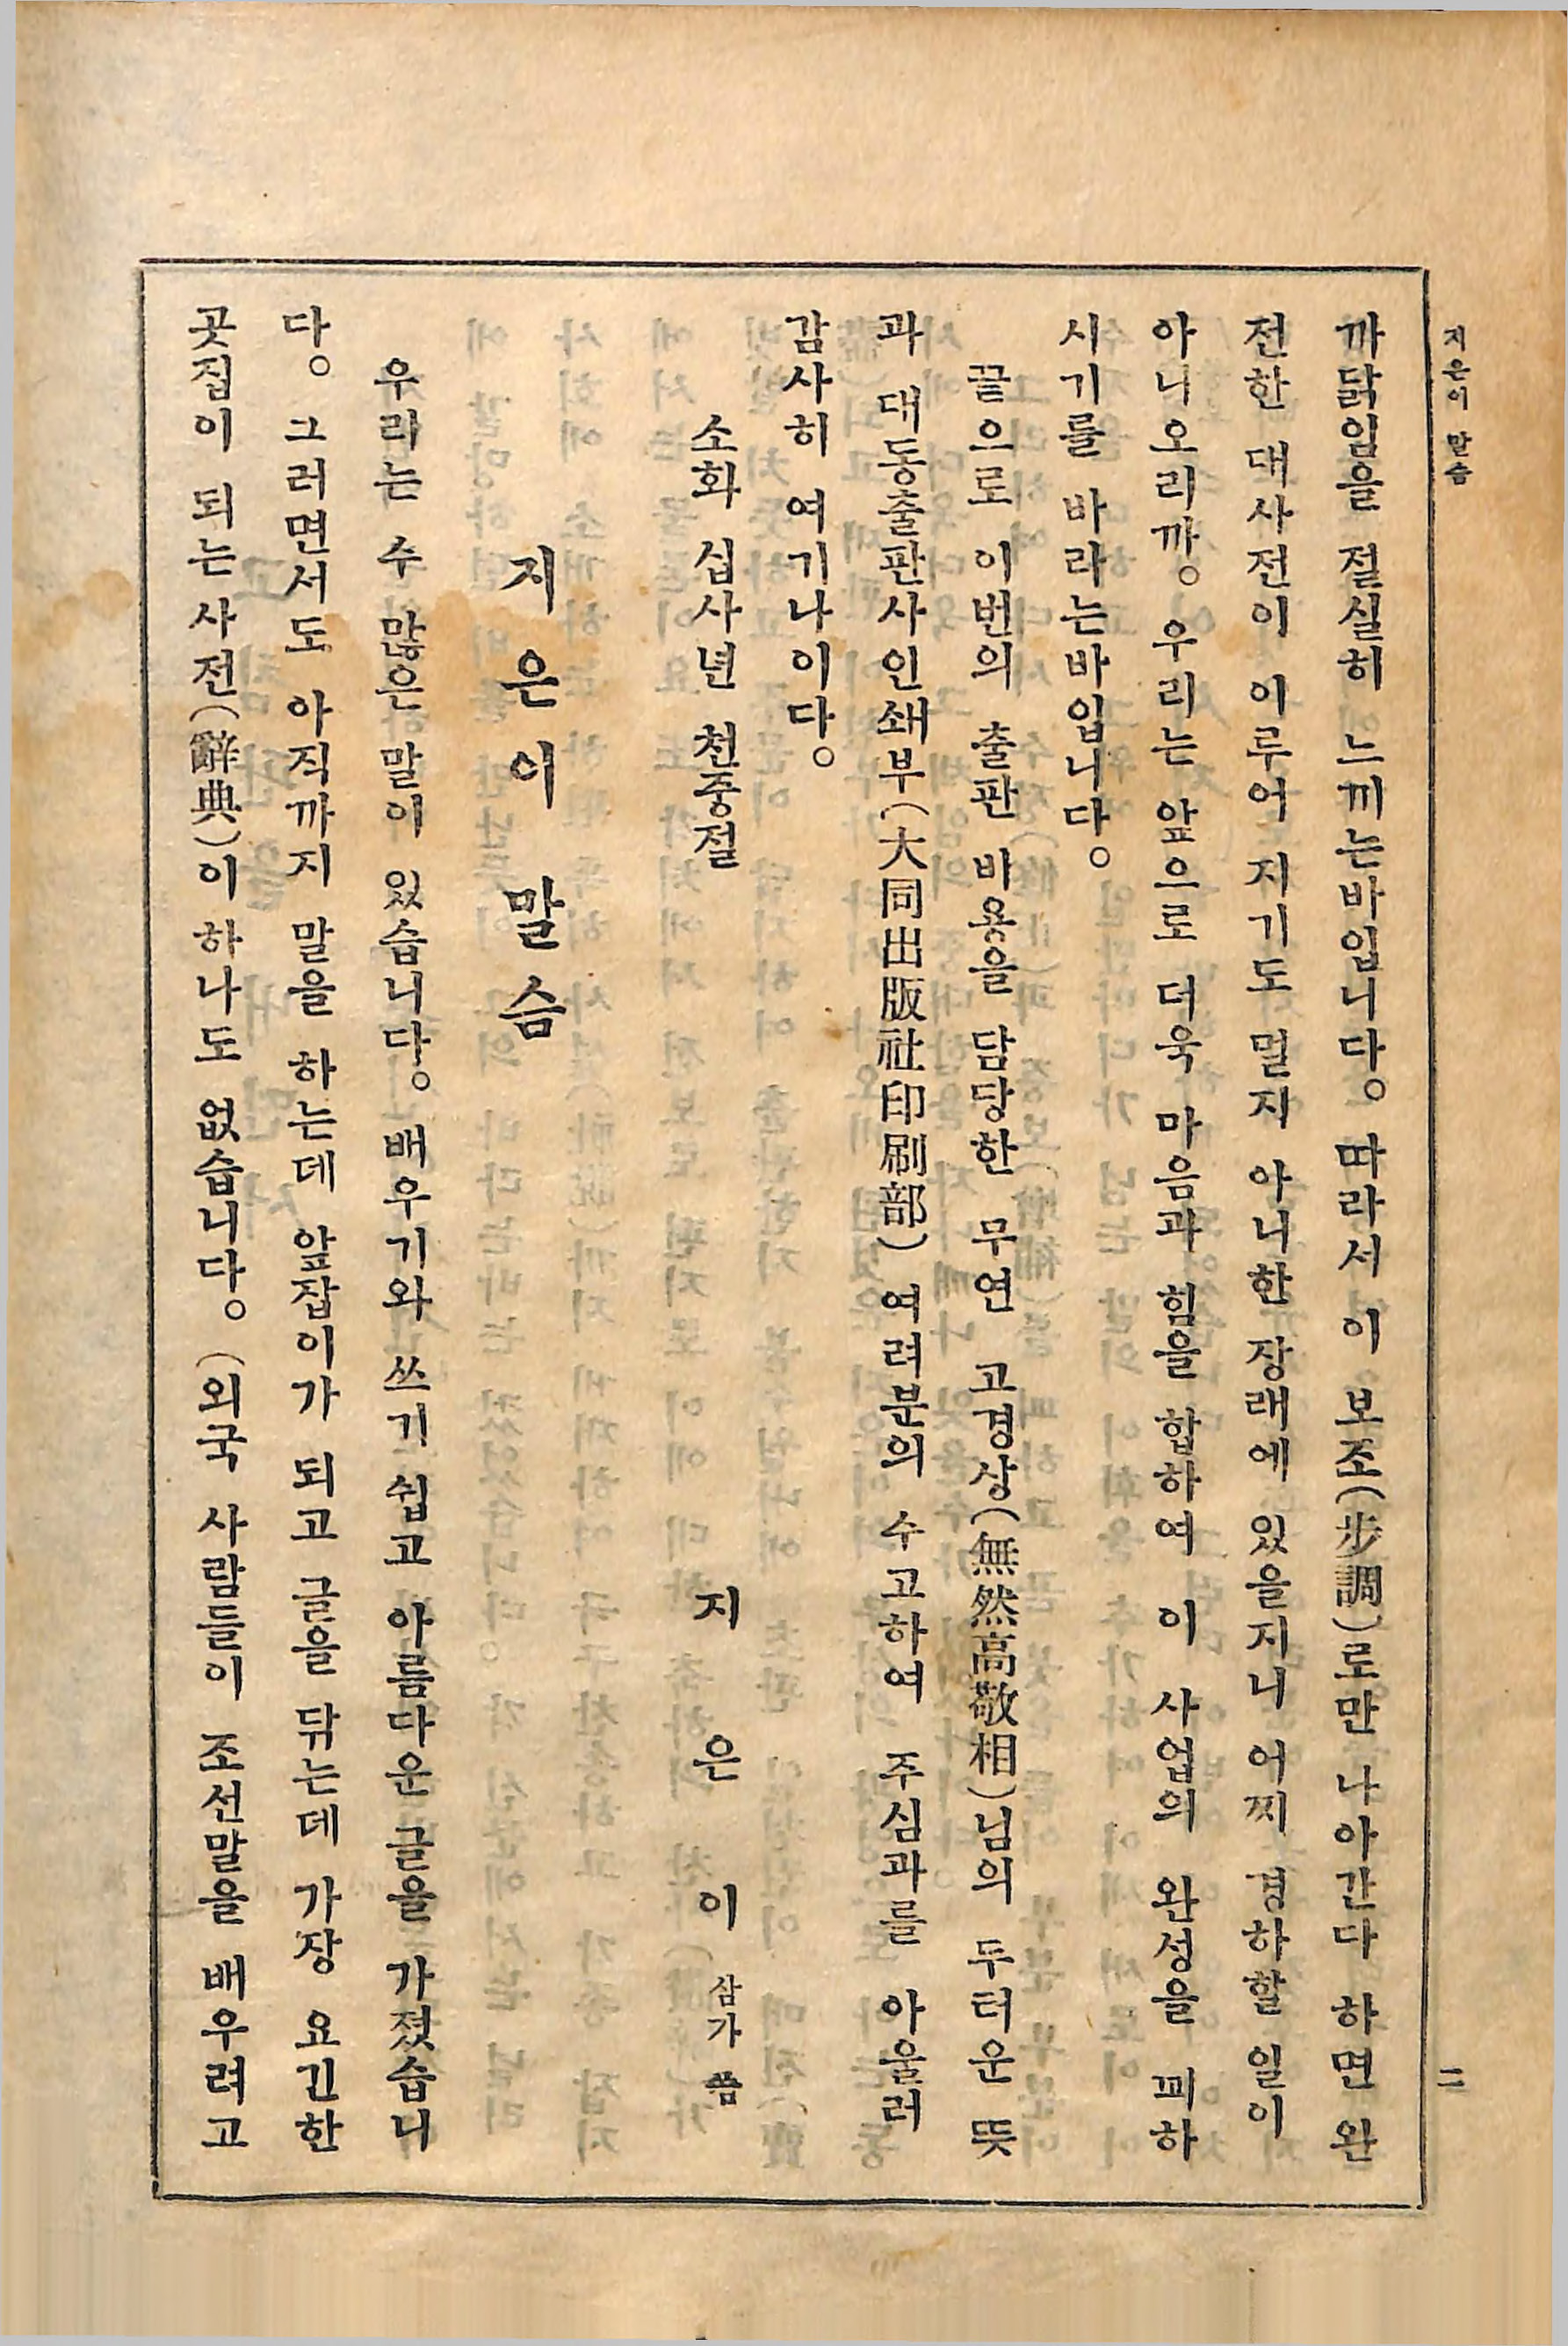 지은이 말슴
二
까닭임을 절실히 느끼는바입니다。 따라서 이 보조(步調)로만 나아간다 하면 완
전한 대사전이 이루어 지기도 멀지 아니한 장래에 있을지니 어찌 경하할 일이
아니오리까。 우리는 앞으로 더욱 마음과 힘을 합하여 이 사업의 완성을 꾀하
시기를 바라는바입니다。
끝으로 이번의 출판 비용을 담당한 무연 고경상(無然高敬相)님의 두터운 뜻
과 대동출판사인쇄부(大同出版社印刷部) 여러분의 수고하여 주심과를 아울러
감사히 여기나이다。
소화 십사년 천중절
지은이 삼가 씀
지은이 말슴
우리는 수 많은 말이 있습니다。 배우기와 쓰기 쉽고 아름다운 글을 가졌습니
다。 그러면서도 아직까지 말을 하는데 앞잡이가 되고 글을 닦는데 가장 요긴한
곳집이 되는 사전(辭典)이 하나도 없습니다。 (외국 사람들이 조선말을 배우려고